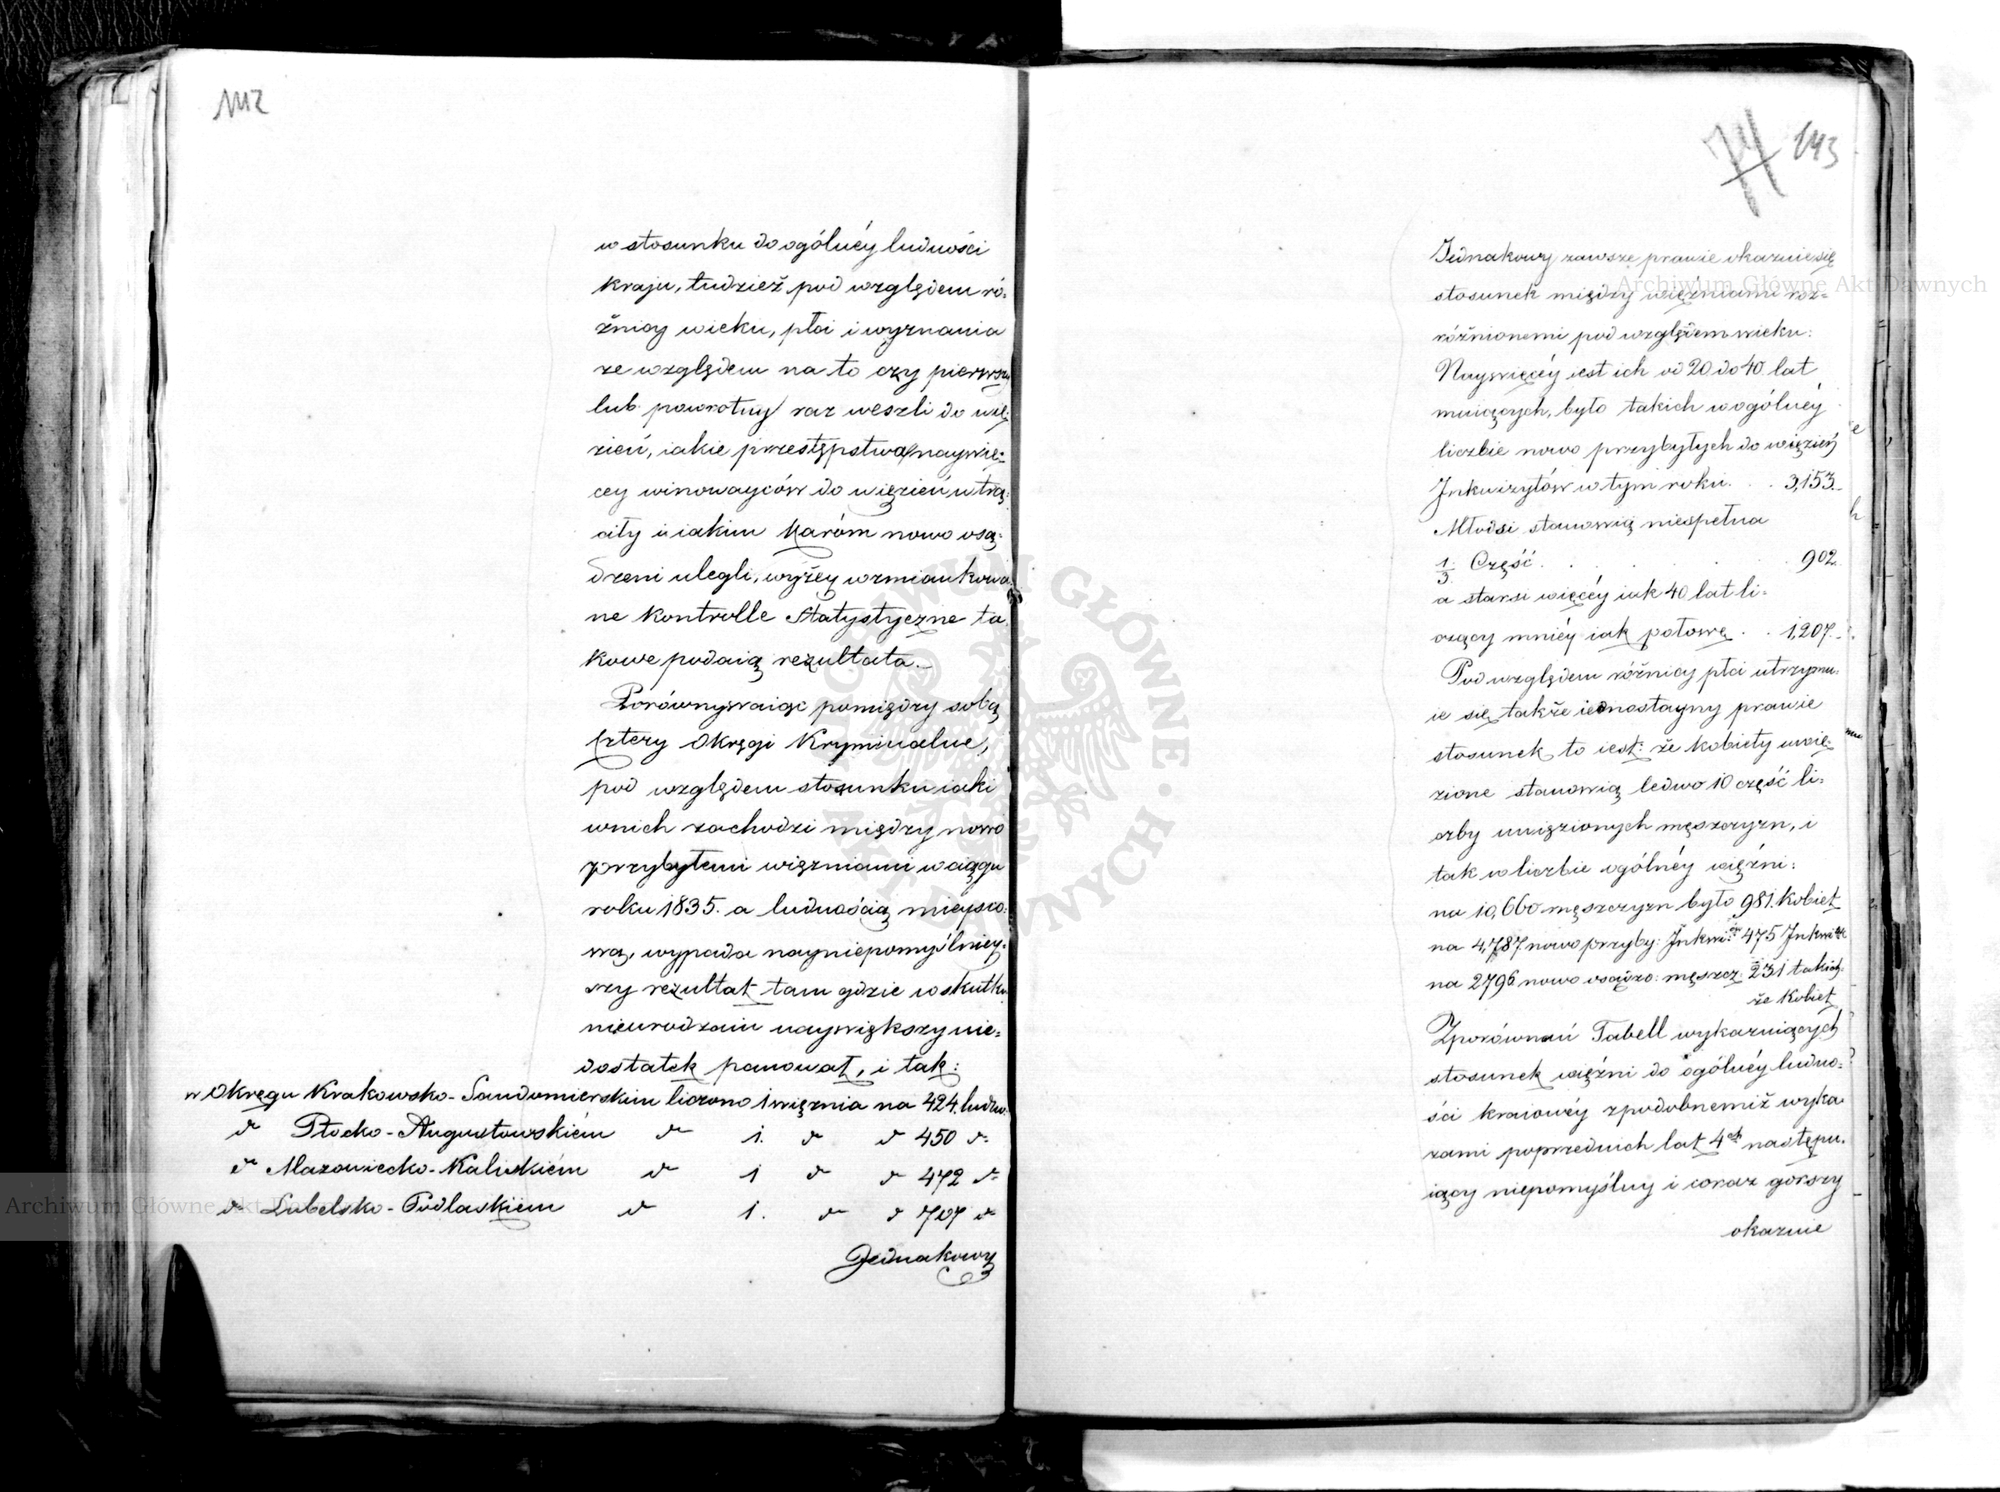 142
w stosunku do ogólnéy ludności
kraju, tudzież pod względem ró-
żnicy wieku, płci i wyznania
ze względem na to czy pierwszy
lub powrotny raz weszli do wię-
zień, iakie przestępstwa naywię-
cey winowayców do więzień wtrą-
ciły i iakim karóm nowo osą-
dzeni ulegli, wyżey wzmiankowa-
ne kontrolle Statystyczne ta-
kowe podaią rezultata.
Porównywaiąc pomiędzy sobą
cztery Okręgi Kryminalne,
pod względem stosunku iaki
wnich zachodzi między nowo
przybyłemi więzniami w ciągu
roku 1835. a ludnością mieysco-
wą, wypada nayniepomyślniey-
szy rezultat tam gdzie w skutku
nieurodzaiu naywiększy nie-
dostatek panował, i tak:
w Okręgu Krakowsko-Sandomierskim liczono 1 więznia na 424. ludno:
dº Płocko-Augustowskiém dº 1. dº dº 450 dº
dº Mazowiecko-Kaliskiém dº 1 dº dº 472 dº
dº Lubelsko-Podlaskiém dº 1. dº dº 707 dº
Jednakowy
74 143
Jednakowy zawsze prawie okazuie się
stosunek między więzniami roz-
różnionemi pod względem wieku:
Naywięcéy iest ich od 20 do 40 lat
maiących, było takich w ogólnéy
liczbie nowo przybyłych do więzień
Inkwizytów w tym roku . . 3,153.
Młodsi stanowią niespełna
1/3 Część . . . . . 902.
a starsi więcéy iak 40 lat li-
czący mniéy iak połowę . . 1,207.
Pod względem różnicy płci utrzymu-
ie się także iednostayny prawie
stosunek to iest: że kobiety uwię-
zione stanowią ledwo 10 część li-
czby uwięzionych męszczyzn, i
tak w liczbie ogólnéy więźni:
na 10,660 męszczyzn było 981. Kobiet
na 4,787 nowo przyby: Inkwi: 475 Inkwi:
na 2796 nowo osądzo: męszcz: 231 takich-
że Kobiet
Zporównań Tabell wykazuiących
stosunek więźni do ogólnéy ludno-
ści kraiowéy zpodobnemiż wyka-
zami poprzednich lat 4ch następu-
iący niepomyślny i coraz gorszy
okazuie
Archiwum Główne Akt Dawnych
Archiwum Główne Akt Dawnych
ARCHIWUM GŁÓWNE AKT DAWNYCH